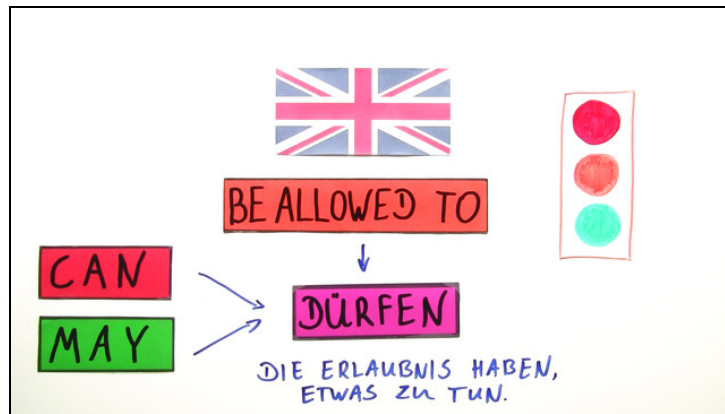 BE ALLOWED TO
CAN
MAY
DÜRFEN
DIE ERLAUBNIS HABEN,
ETWAS ZU TUN.